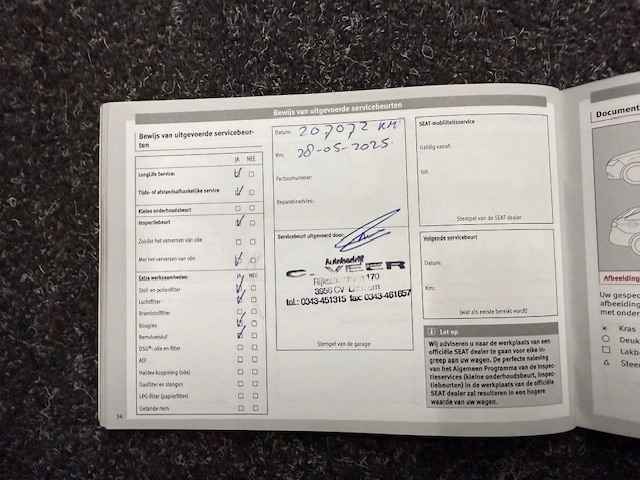 Bewijs van uitgevoerde servicebeurten
Bewijs van uitgevoerde servicebeur-
ten
JA NEE
LongLife Service:
Tijds- of afstandsafhankelijke service
Kleine onderhoudsbeurt
Inspectiebeurt
Zonder het verversen van olie
Met het verversen van olie
Extra werkzaamheden:
JA NEE
Stof- en pollenfilter
Luchtfilter
Brandstoffilter
Bougies
Remvloeistof
DSG®: olie en filter
AdBlue
Haldex koppeling (olie)
Gasfilter en slangen
LPG-filter (papierfilter)
Getande riem
34
Datum: 207072 KM
Km: 28-05-2025
Factuurnummer:
Reparatieadvies:
Servicebeurt uitgevoerd door:
Autobedrijf
C. VEER
170
3956 CV
tel.: 0343-451315 fax 0343-461657
Stempel van de garage
SEAT-mobiliteitsservice
Geldig vanaf:
tot:
Stempel van de SEAT dealer
Volgende servicebeurt
Datum:
Km:
(wat als eerste bereikt wordt)
i Let op
Wij adviseren u naar de werkplaats van een
officiële SEAT dealer te gaan voor elke in-
greep aan uw wagen. De perfecte naleving
van het Algemeen Programma van de Inspec-
tieservices (kleine onderhoudsbeurt, inspec-
tiebeurten) in de werkplaats van de officiële
SEAT dealer zal resulteren in een hogere
waarde van uw wagen.
Document
Afbeelding
Uw gespec
afbeelding
met onder
× Kras
Deuk
Lakb
Stee